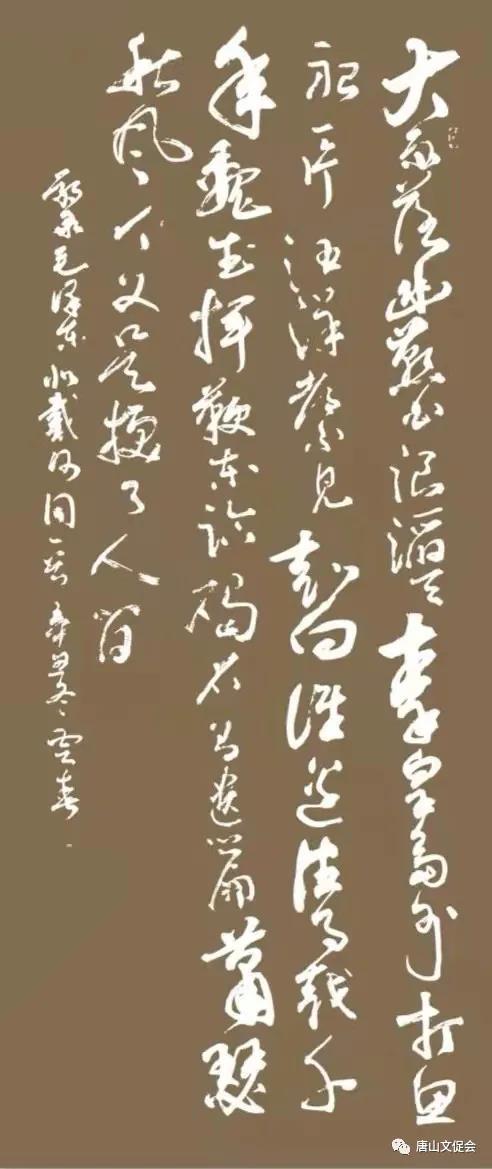 大雨落幽燕白浪滔天秦皇岛外打鱼
船一片汪洋都不见知向谁边往事越千
年魏武挥鞭东临碣石有遗篇萧瑟
秋风今又是换了人间
录毛泽东北戴河词一首辛丑冬云春
唐山文促会